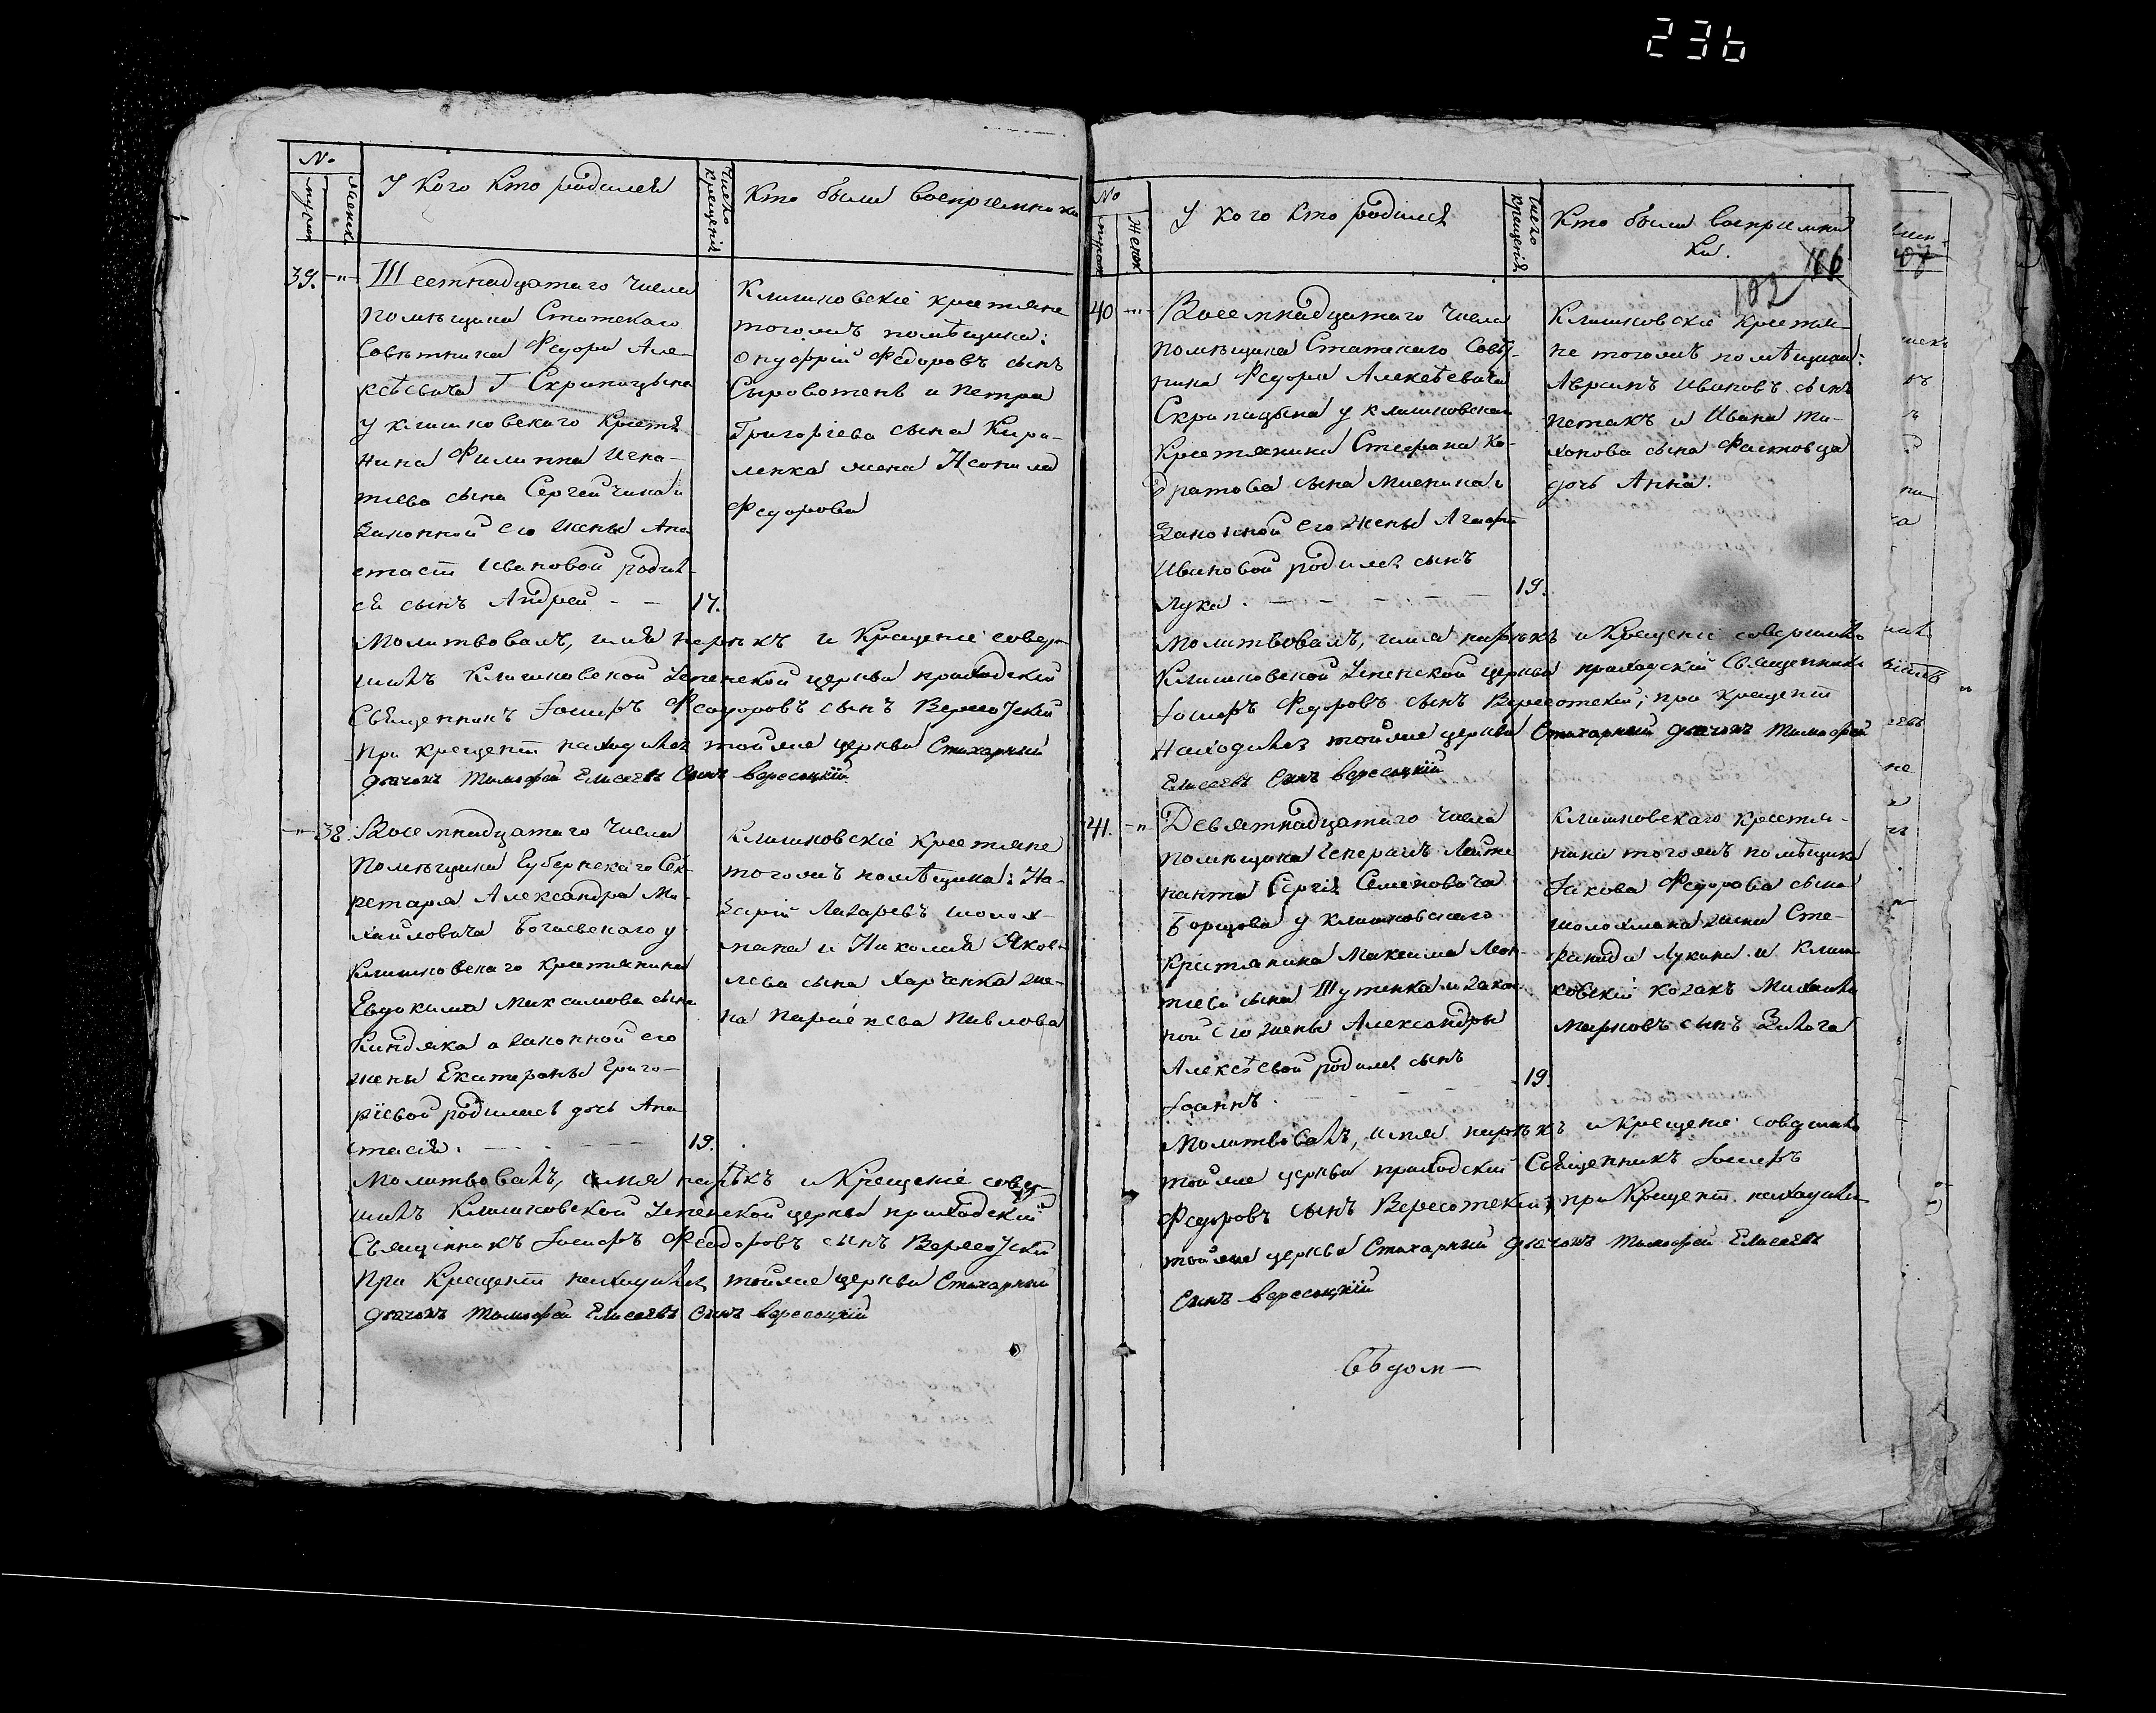 236
№
мужск
женск
У кого кто родился
Число крещенія
Кто были воспріемники
39. -"-
Шестнадцатого числа
помѣщика Статского
Совѣтника Федора Але-
ксѣевича Г Скрипицына
у клишковского крестя
нина Филиппа Игна-
тіева сына Сергейчика и
законной его жены Ана
стасіи Ивановой родил-
ся сынъ Андрей - -
17.
Клишковскіе крестяне
тогожъ помѣщика:
Онуфрій Федоровъ сынъ
Сыроватенъ и Петра
Григоріева сына Кири-
ленка жена
Федорова
Молитвовалъ, имя нарѣкъ и Крещеніе совер-
шилъ Клишковской Успенской церкви приходскій
Священникъ Іосифъ Феодоровъ сынъ Вересоцкій
При крещеніи находился тойже церкви Стихарный
дьячокъ Тимофей Елисеевъ Сынъ Вересоцкій
-"- 38.
Восемнадцатаго числа
Помѣщика Губернскаго Сек-
ретаря Александра Ми-
хайловича Богаевского у
Клишковскаго крестянина
Евдокима Максимова сына
Киндяка и законной его
жены Екатерины Григо-
ріевой родилась дочь Ана
стасія. - - - -
19.
Клишковскіе крестяне
тогожъ помѣщика: На-
зарій Лазаревъ
и Николая Яков-
лева сына Харченка же-
на Параскева Павлова
Молитвовалъ, имя нарѣкъ и Крещеніе совер-
шилъ Клишковской Успенской церкви приходскій
Священникъ Іосифъ Феодоровъ сынъ Вересоцкій
При Крещеніи находился тойже церкви Стихарный
дьячокъ Тимофей Елисеевъ Сынъ Вересоцкій
№
мужск
Женск
У кого кто родился
Число Крещенія
Кто были воспріемни
ки.
102 116
40 -"-
Восемнадцатого числа
помѣщика Статского Совѣт-
ника Федора Алексѣевича
Скрипицына у клишковского
Крестянина Стефана Ко-
дратова сына Мисника и
Законной его жены Агафіи
Ивановой родился сынъ
Лука. - - - -
19.
Клишковскіе крестя-
не тогожъ помѣщика:
Аврамъ Ивановъ сынъ
Петакъ и Ивана Ти-
хонова сына Фастовца
дочь Анна.
Молитвовалъ, имя нарѣкъ и Крещеніе совершилъ
Клишковской Успенской церкви приходскій Священникъ
Іосифъ Федоровъ сынъ Вересотскій; при крещеніи
Находился тойже церкви Стихарный дьячокъ Тимофей
Елисеевъ Сынъ Вересоцкій
41. -"-
Девятнадцатаго числа
помѣщика Генералъ Лейте
нанта Сергія Семеновича
Борщова у клишковского
Крестянина Максима Леон-
тіева сына Шутенка и закон
ной его жены Александры
Алексѣевой родился сынъ
Іоаннъ. - - - -
19.
Клишковскаго крестя-
нина тогожъ помѣщика
Іакова Федорова сына
жена Сте-
фанида Лукина и Клиш
ковскій козакъ Михаилъ
Марковъ сынъ
Молитвовалъ, имя нарѣкъ и крещеніе совершилъ
тойже церкви приходскій Священникъ Іосифъ
Федоровъ сынъ Вересотскій; при Крещеніи находился
тойже церкви Стихарный дьячокъ Тимофей Елисеевъ
Сынъ Вересоцкій
Вѣдом-